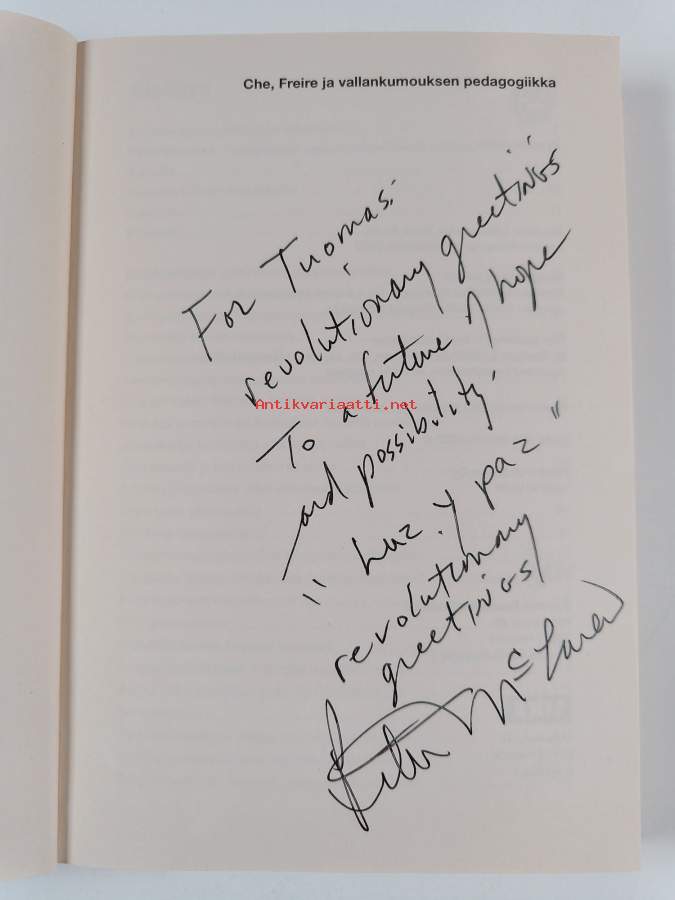 Che, Freire ja vallankumouksen pedagogiikka
For Tuomas:
revolutionary greetings
To a future of hope
and possibility
Antikvariaatti.net
"Luz y paz"
revolutionary
greetings
Peter McLaren